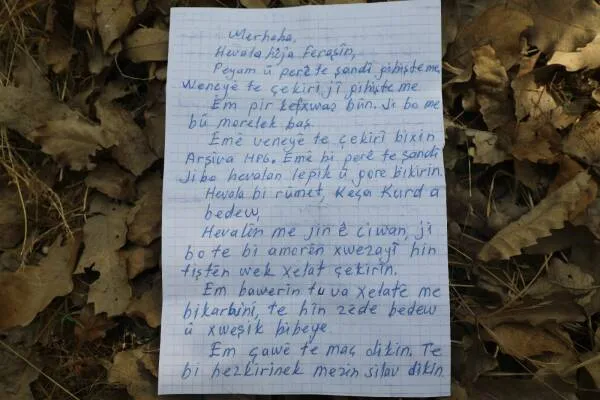 Merhaba,
Hevala hêja Feraşîn,
Peyam û perê te şandî gihişte me,
Weneyê te çekirî jî gihişte me
Em pir kefxwaş bûn. Ji bo me
bû morelek baş.
Emê veneyê te çekirî bixin
Arşîva HPG. Emê bi perê te şandî
Ji bo hevalan lepik û gore bikirin.
Hevala bi rûmet, Keça Kurd a
bedew,
Hevalên me jin ê ciwan, ji
bo te bi amorên xwezayî hin
tiştên wek xelat çekirîn.
Em bawerin tu va xelate me
bikarbînî, te hîn zêde bedew
û xweşik bibeye
Em çavê te maç dikin. Te
bi hezkirinek mezin silav dikin